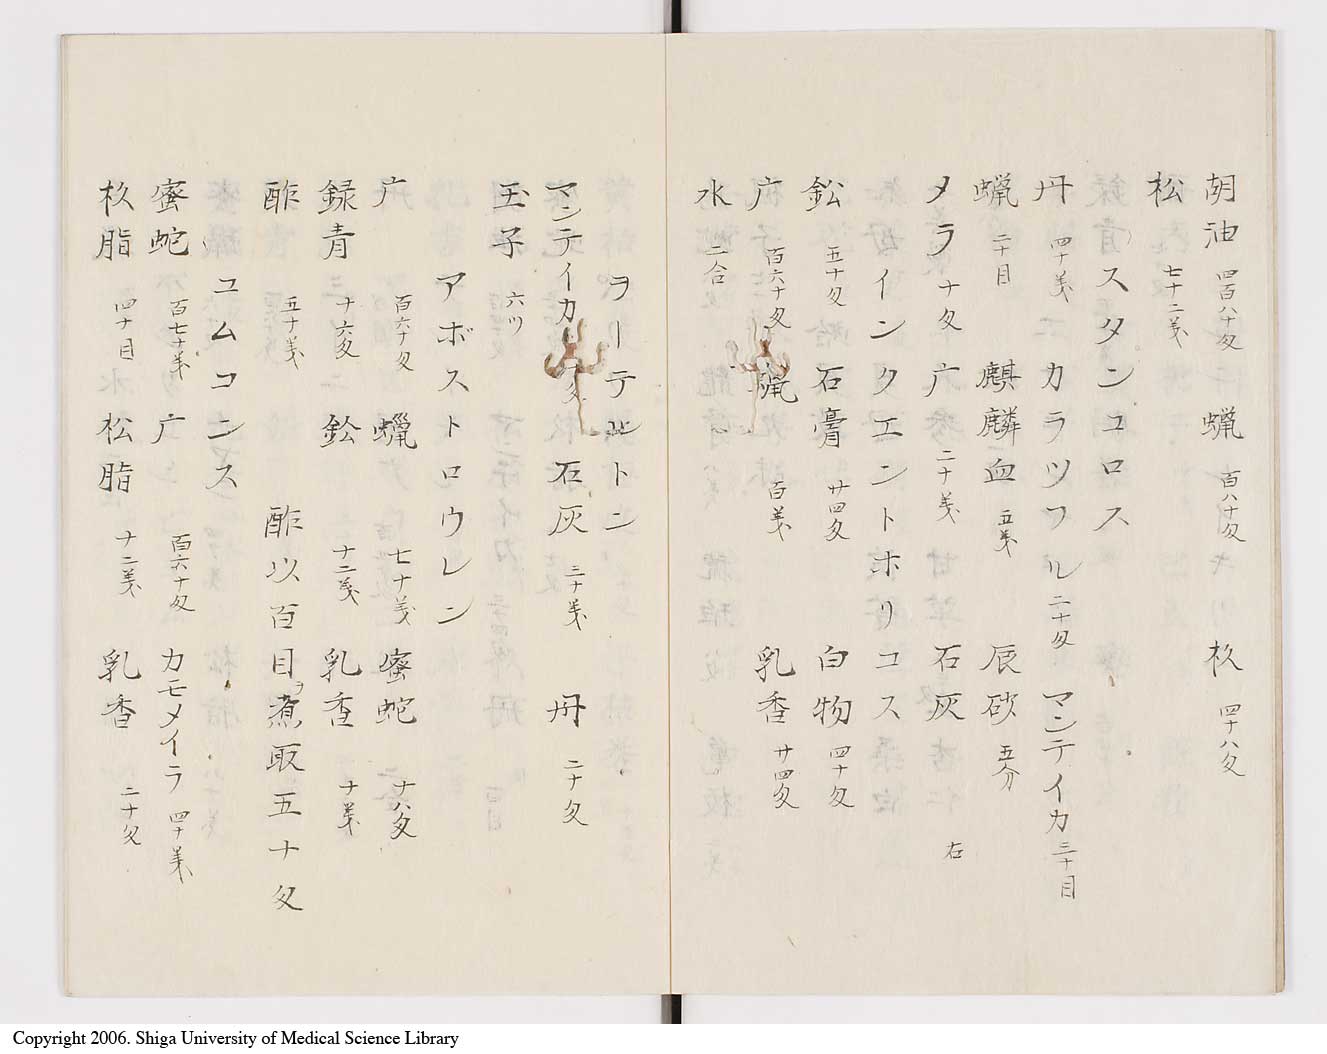 胡油 四百八十匁 蝋 百八十匁 杦 四十八匁
松 七十二羙
スタンコロス
丹 四十羙 カラツフル 二十匁 マンテイカ 三十目
蝋 二十目 麒麟血 五羙 辰砂 五分
メラ 十匁 广 二十羙 石灰 右
インクエントホリコス
鈆 五十匁 石膏 廿四匁 白物 四十匁
广 百六十匁 蝋 百羙 乳香 廿四匁
水 二合
ラーテヒトン
マンテイカ 石灰 三十羙 丹 二十匁
玉子 六ツ
アボストロウレン
广 百六十匁 蝋 七十羙 蜜蛇 十八匁
緑青 十六匁 鈆 十二羙 乳香 十羙
酢 五十羙 酢以百目ヲ煮取五十匁
コムコンス
蜜蛇 百七十羙 广 百六十匁 カモメイラ 四十羙
杦脂 四十目 松脂 十二羙 乳香 二十匁
Copyright 2006. Shiga University of Medical Science Library